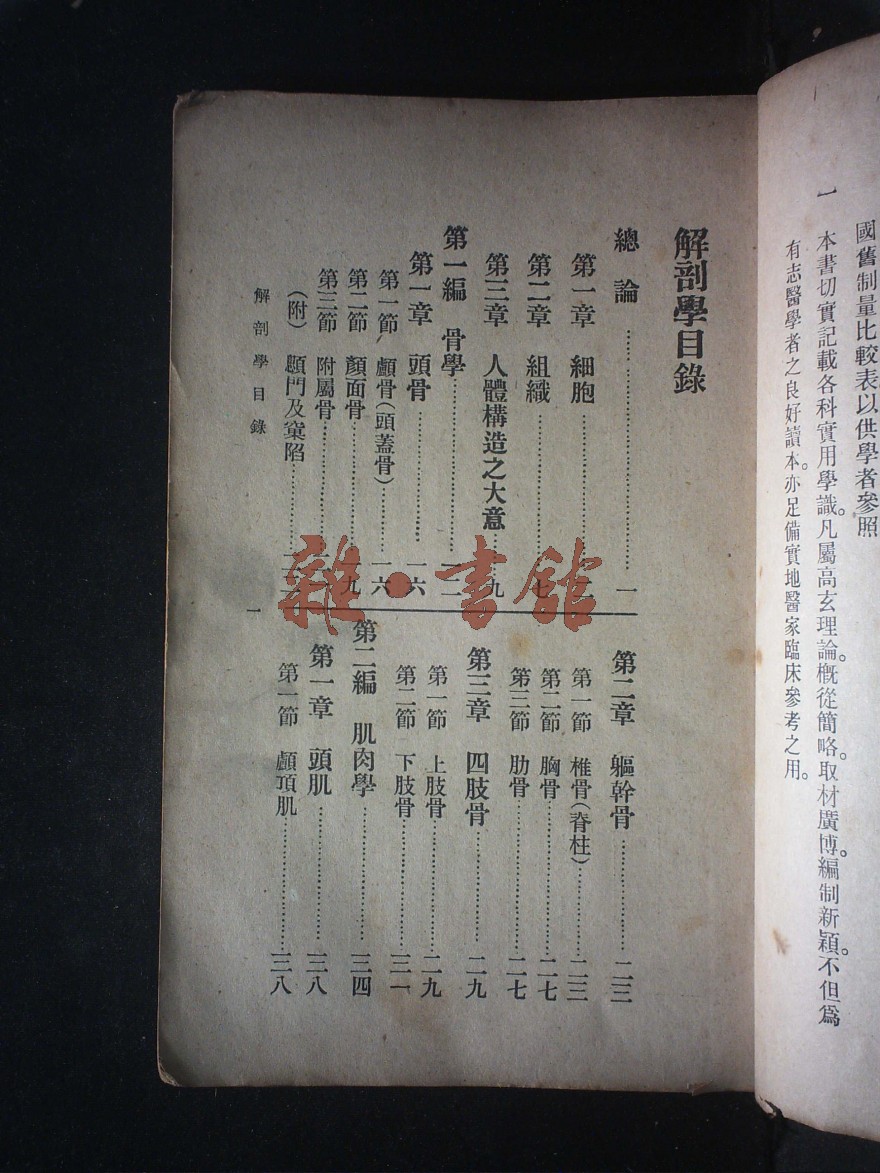 國舊制量比較表以供學者參照
一 本書切實記載各科實用學識。凡屬高玄理論。概從簡略。取材廣博。編制新穎。不但爲
有志醫學者之良好讀本。亦足備實地醫家臨床參考之用。
解剖學目錄
總論……一
第一章 細胞……
第二章 組織……七
第三章 人體構造之大意……九
第一編 骨學……一二
第一章 頭骨……一六
第一節 顱骨(頭蓋骨)……一六
第二節 顏面骨……九
第三節 附屬骨……
(附) 顖門及窠陷……
第二章 軀幹骨……二三
第一節 椎骨(脊柱)……二三
第二節 胸骨……二七
第三節 肋骨……二七
第三章 四肢骨……二九
第一節 上肢骨……二九
第二節 下肢骨……三一
第二編 肌肉學……三四
第一章 頭肌……三八
第一節 顱頂肌……三八
解剖學目錄
一
雜·書館